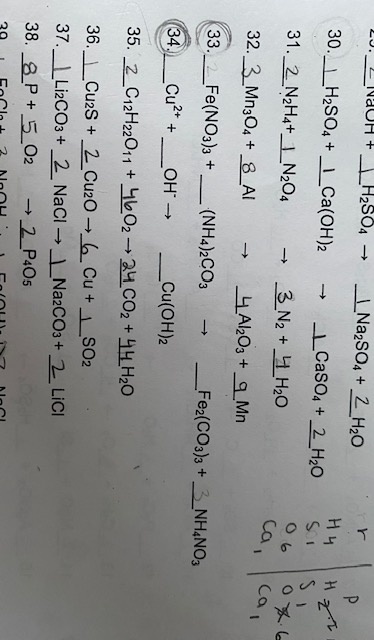 2 NaOH + 1 H2SO4 → 1 Na2SO4 + 2 H2O
30. 1 H2SO4 + 1 Ca(OH)2 → 1 CaSO4 + 2 H2O
31. 2 N2H4 + 1 N2O4 → 3 N2 + 4 H2O
32. 3 Mn3O4 + 8 Al → 4 Al2O3 + 9 Mn
33. 2 Fe(NO3)3 + ___ (NH4)2CO3 → ___ Fe2(CO3)3 + 3 NH4NO3
34. ___ Cu2+ + ___ OH- → ___ Cu(OH)2
35. 2 C12H22O11 + 46 O2 → 24 CO2 + 44 H2O
36. 1 Cu2S + 2 Cu2O → 6 Cu + 1 SO2
37. 1 Li2CO3 + 2 NaCl → 1 Na2CO3 + 2 LiCl
38. 8 P + 5 O2 → 2 P4O5
39. 1 FeCl3 + 3 NaOH
r | p
H 4 | H
S 1 | S 1
O 6 | O 6
Ca 1 | Ca 1